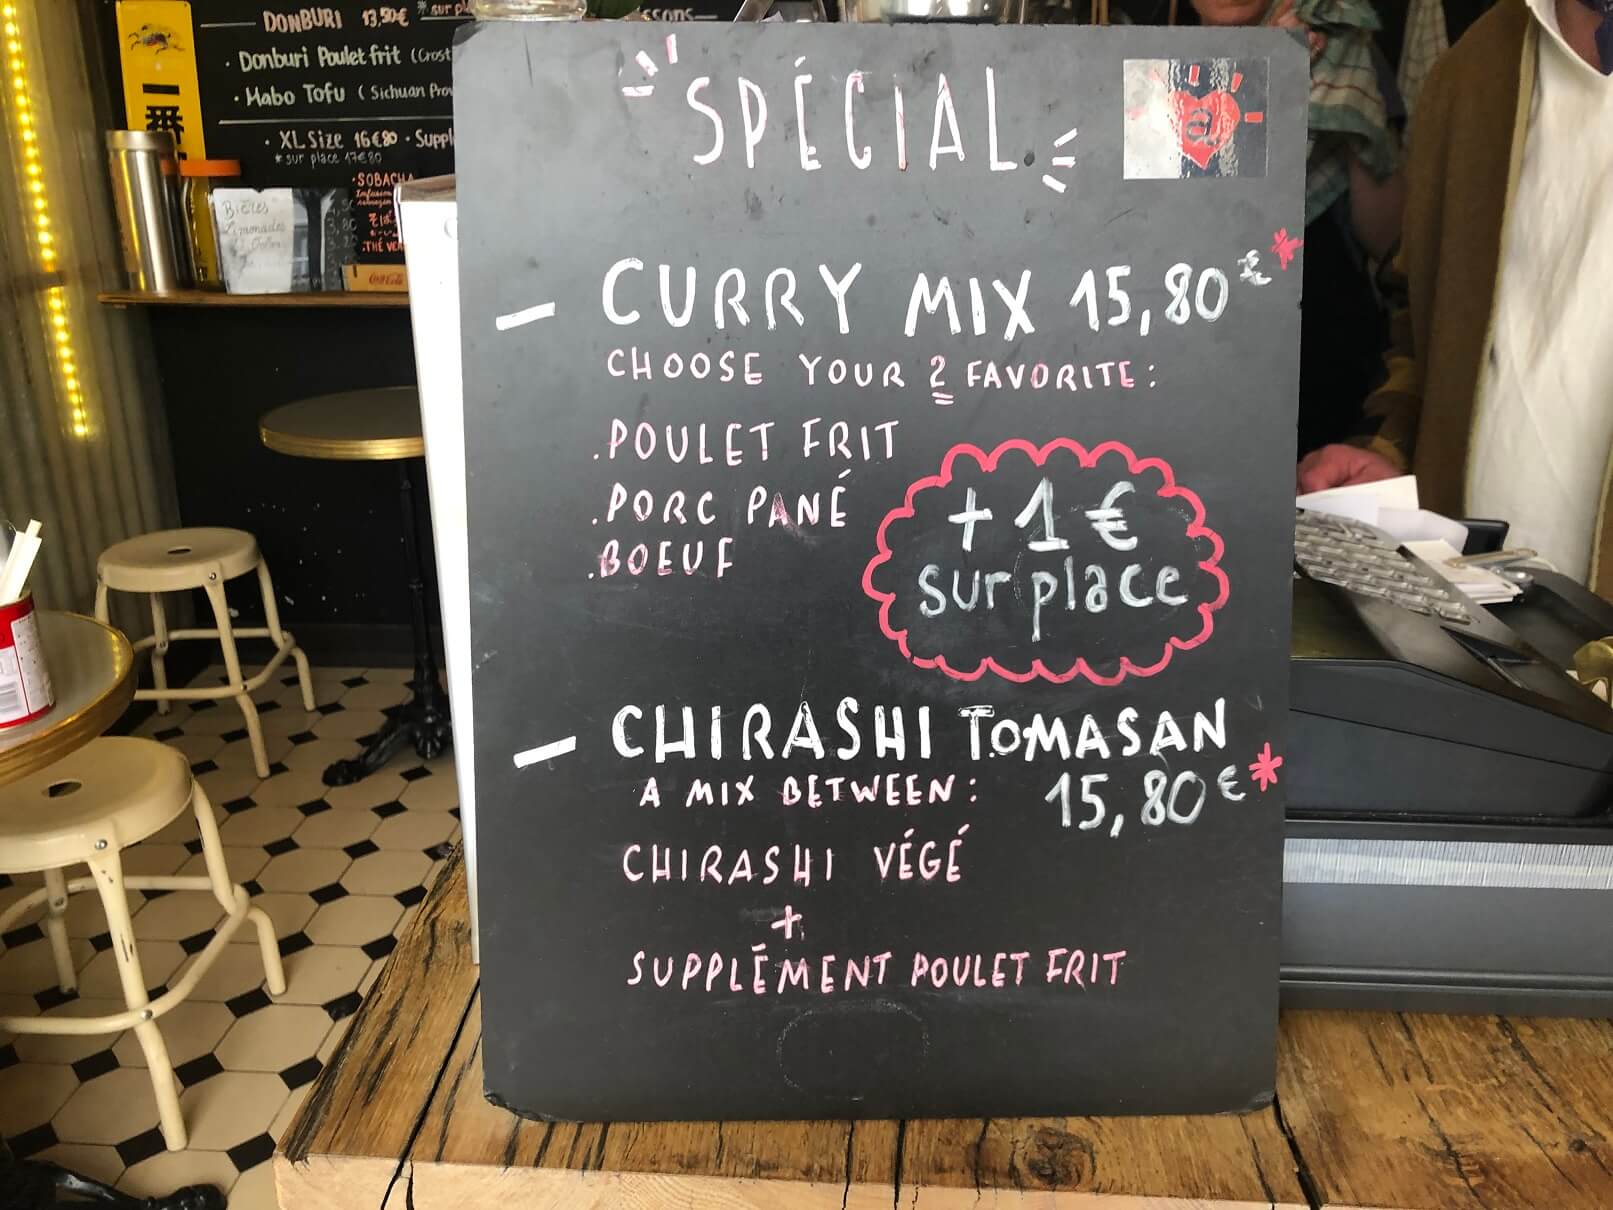 DONBURI 13,50€
Donburi Poulet frit
Mabo Tofu ( Sichuan
XL Size 16€80 · Suppl
*sur place 17€80
SOBACHA
Bières
Limonades
Coca-Cola
一番
SPÉCIAL
a
— CURRY MIX 15,80€*
CHOOSE YOUR 2 FAVORITE:
.POULET FRIT
.PORC PANÉ
.BOEUF
+1€
sur place
— CHIRASHI TOMASAN
A MIX BETWEEN: 15,80€*
CHIRASHI VÉGÉ
+
SUPPLÉMENT POULET FRIT